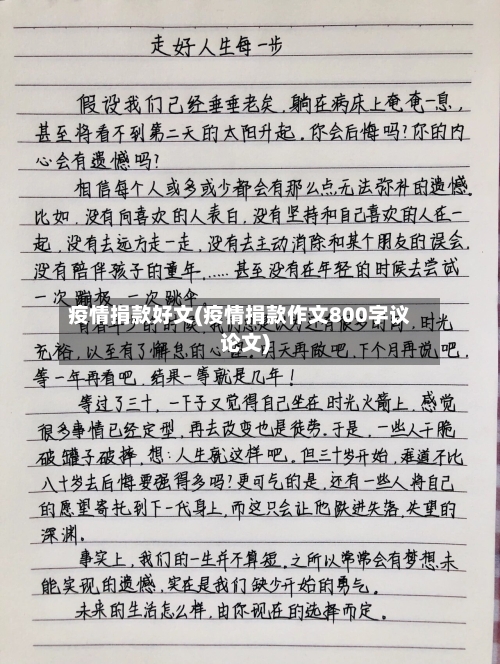 走好人生每一步
假设我们已经垂垂老矣,躺在病床上奄奄一息,
甚至将看不到第二天的太阳升起。你会后悔吗?你的内
心会有遗憾吗?
相信每个人或多或少都会有那么点无法弥补的遗憾。
比如,没有向喜欢的人表白,没有坚持和自己喜欢的人在一
起,没有去远方走一走,没有去主动消除和某个朋友的误会,
没有陪伴孩子的童年……甚至没有在年轻的时候去尝试
一次蹦极、一次跳伞。
疫情捐款好文(疫情捐款作文800字议
论文)
时光
充裕,以至有了懈怠的心
明天再做吧,下个月再说吧,
等一年再看吧,结果一等就是几年!
等过了三十,一下子又觉得自己坐在时光火箭上,感觉
很多事情已经定型,再去改变也是徒劳。于是,一些人干脆
破罐子破摔,想:人生就这样吧。但三十岁开始,难道不比
八十岁去后悔要强得多吗?更可气的是,还有一些人将自己
的愿望寄托到下一代身上,而这只会让他跌进失落、失望的
深渊。
事实上,我们的一生并不算短。之所以常常会有梦想未
能实现的遗憾,实在是我们缺少开始的勇气。
未来的生活怎么样,由你现在的选择而定。